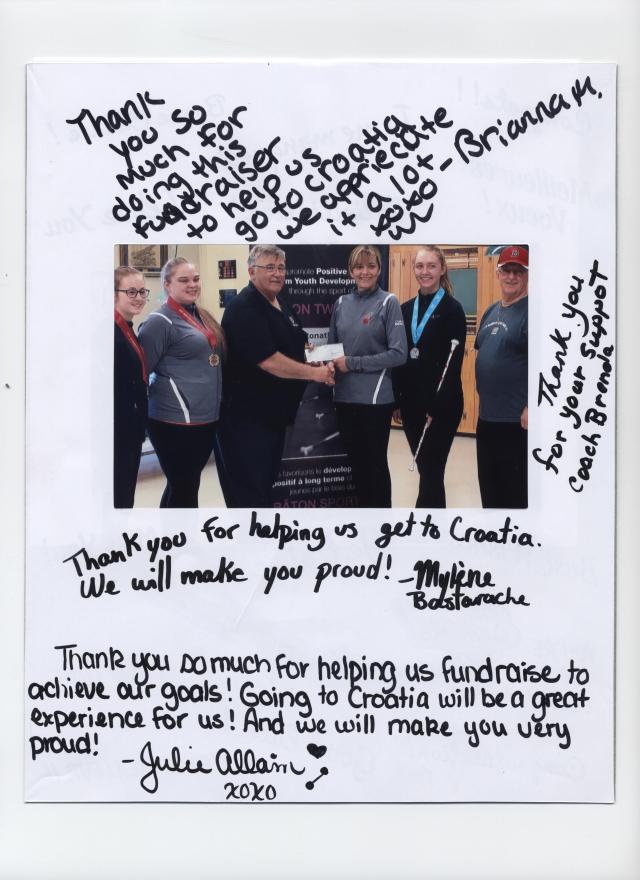 Thank
you so
much for
doing this
fundraiser
to help us
go to croatia
we appriecate
it a lot
xoxo - Brianna M.
Thank you
for your support
Coach Brenda
promote Positive
m Youth Developm
through the sport of
ON TW
onat
s favorisons le dévelop
positif à long terme
jeunes par le biais du
BÂTON SPORT
Thank you for helping us get to Croatia.
We will make you proud! - Mylène
Bastarache
Thank you so much for helping us fundraise to
achieve our goals! Going to Croatia will be a great
experience for us! And we will make you very
proud!
- Julie Allain
xoxo